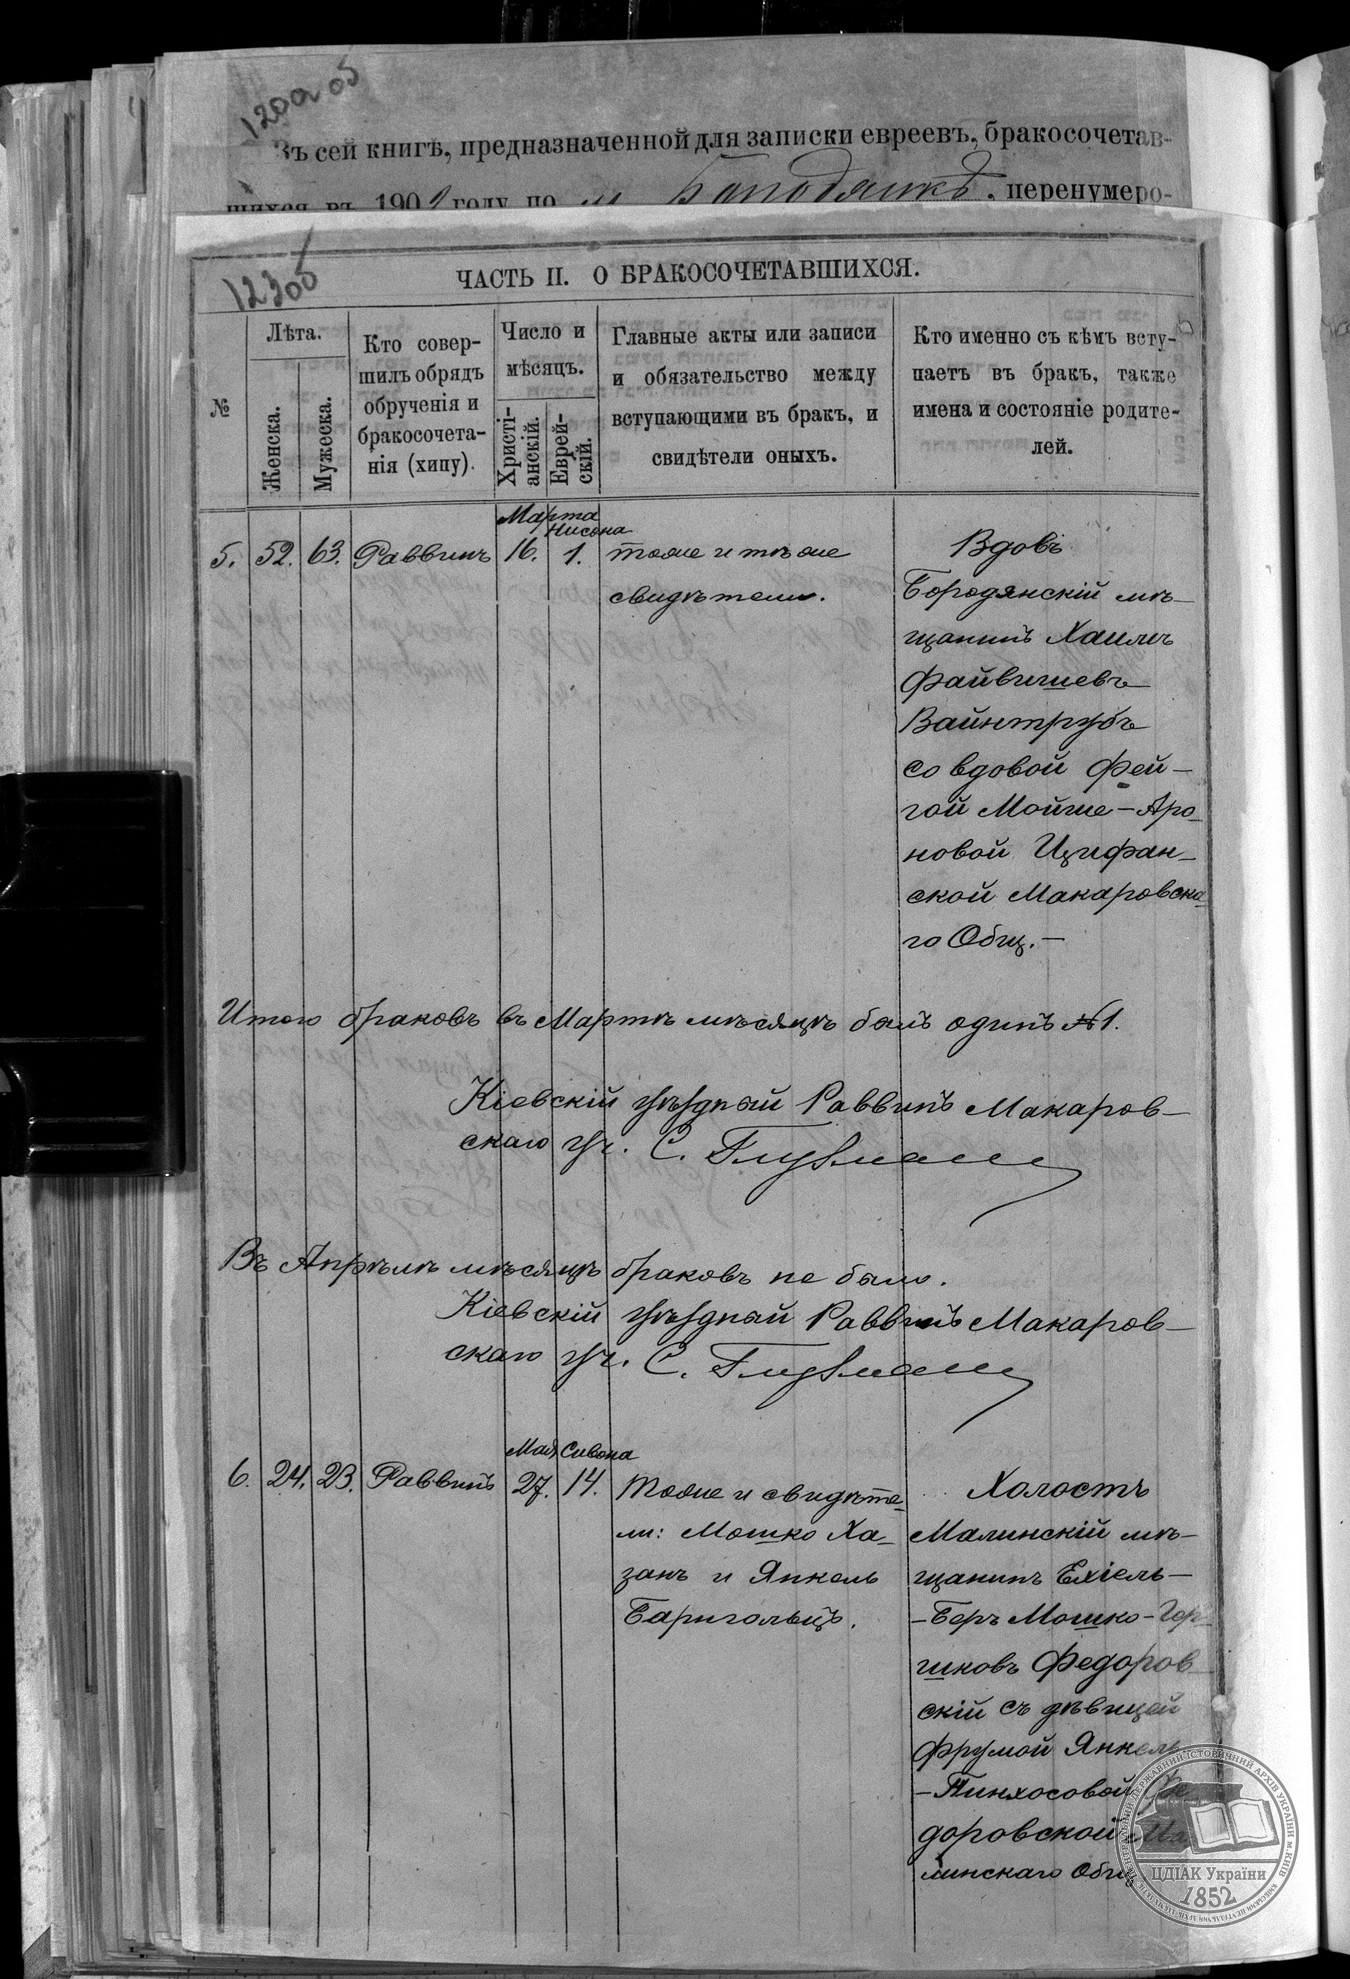 120а об
Въ сей книгѣ, предназначенной для записки евреевъ, бракосочетав-
шихся въ 190 году по м Бородянкѣ, перенумеро-
123об
ЧАСТЬ II. О БРАКОСОЧЕТАВШИХСЯ.
№
Лѣта.
Женска.
Мужеска.
Кто совер-
шилъ обрядъ
обрученія и
бракосочета-
нія (хипу).
Число и
мѣсяцъ.
Христі-
анскій.
Еврей-
скій.
Главные акты или записи
и обязательство между
вступающими въ бракъ, и
свидѣтели оныхъ.
Кто именно съ кѣмъ всту-
паетъ въ бракъ, также
имена и состояніе родите-
лей.
Марта
Нисона
5. 52. 63. Раввинъ 16. 1. тоже и тѣ же
свидѣтели.
Вдовъ
Бородянскій мѣ-
щанинъ Хаимъ
Файвишевъ
Вайнтрубъ
со вдовой Фей-
гой Мойше-Аро-
новой Цифан-
ской Макаровска-
го Общ.-
Итого браковъ въ Мартѣ мѣсяцѣ былъ одинъ №1.
Кіевскій Уѣздный Раввинъ Макаров-
скаго уч. С. Глузман
Въ Апрѣлѣ мѣсяцѣ браковъ не было.
Кіевскій Уѣздный Раввинъ Макаров-
скаго уч. С. Глузман
Мая Сивона
6. 24. 23. Раввинъ 27. 14. Тоже и свидѣте-
ли: Мошко Ха-
занъ и Янкель
Баригольцъ.
Холостъ
Малинскій мѣ-
щанинъ Ехіель-
-Беръ Мошко-Гер-
шковъ Федоров-
скій съ дѣвицей
Фрумой Янкель
-Пинхосовой Фе-
доровской Ма-
линскаго Общ
ЦЕНТРАЛЬНИЙ ДЕРЖАВНИЙ ІСТОРИЧНИЙ АРХІВ УКРАЇНИ м. КИЇВ
ЦДІАК України
1852